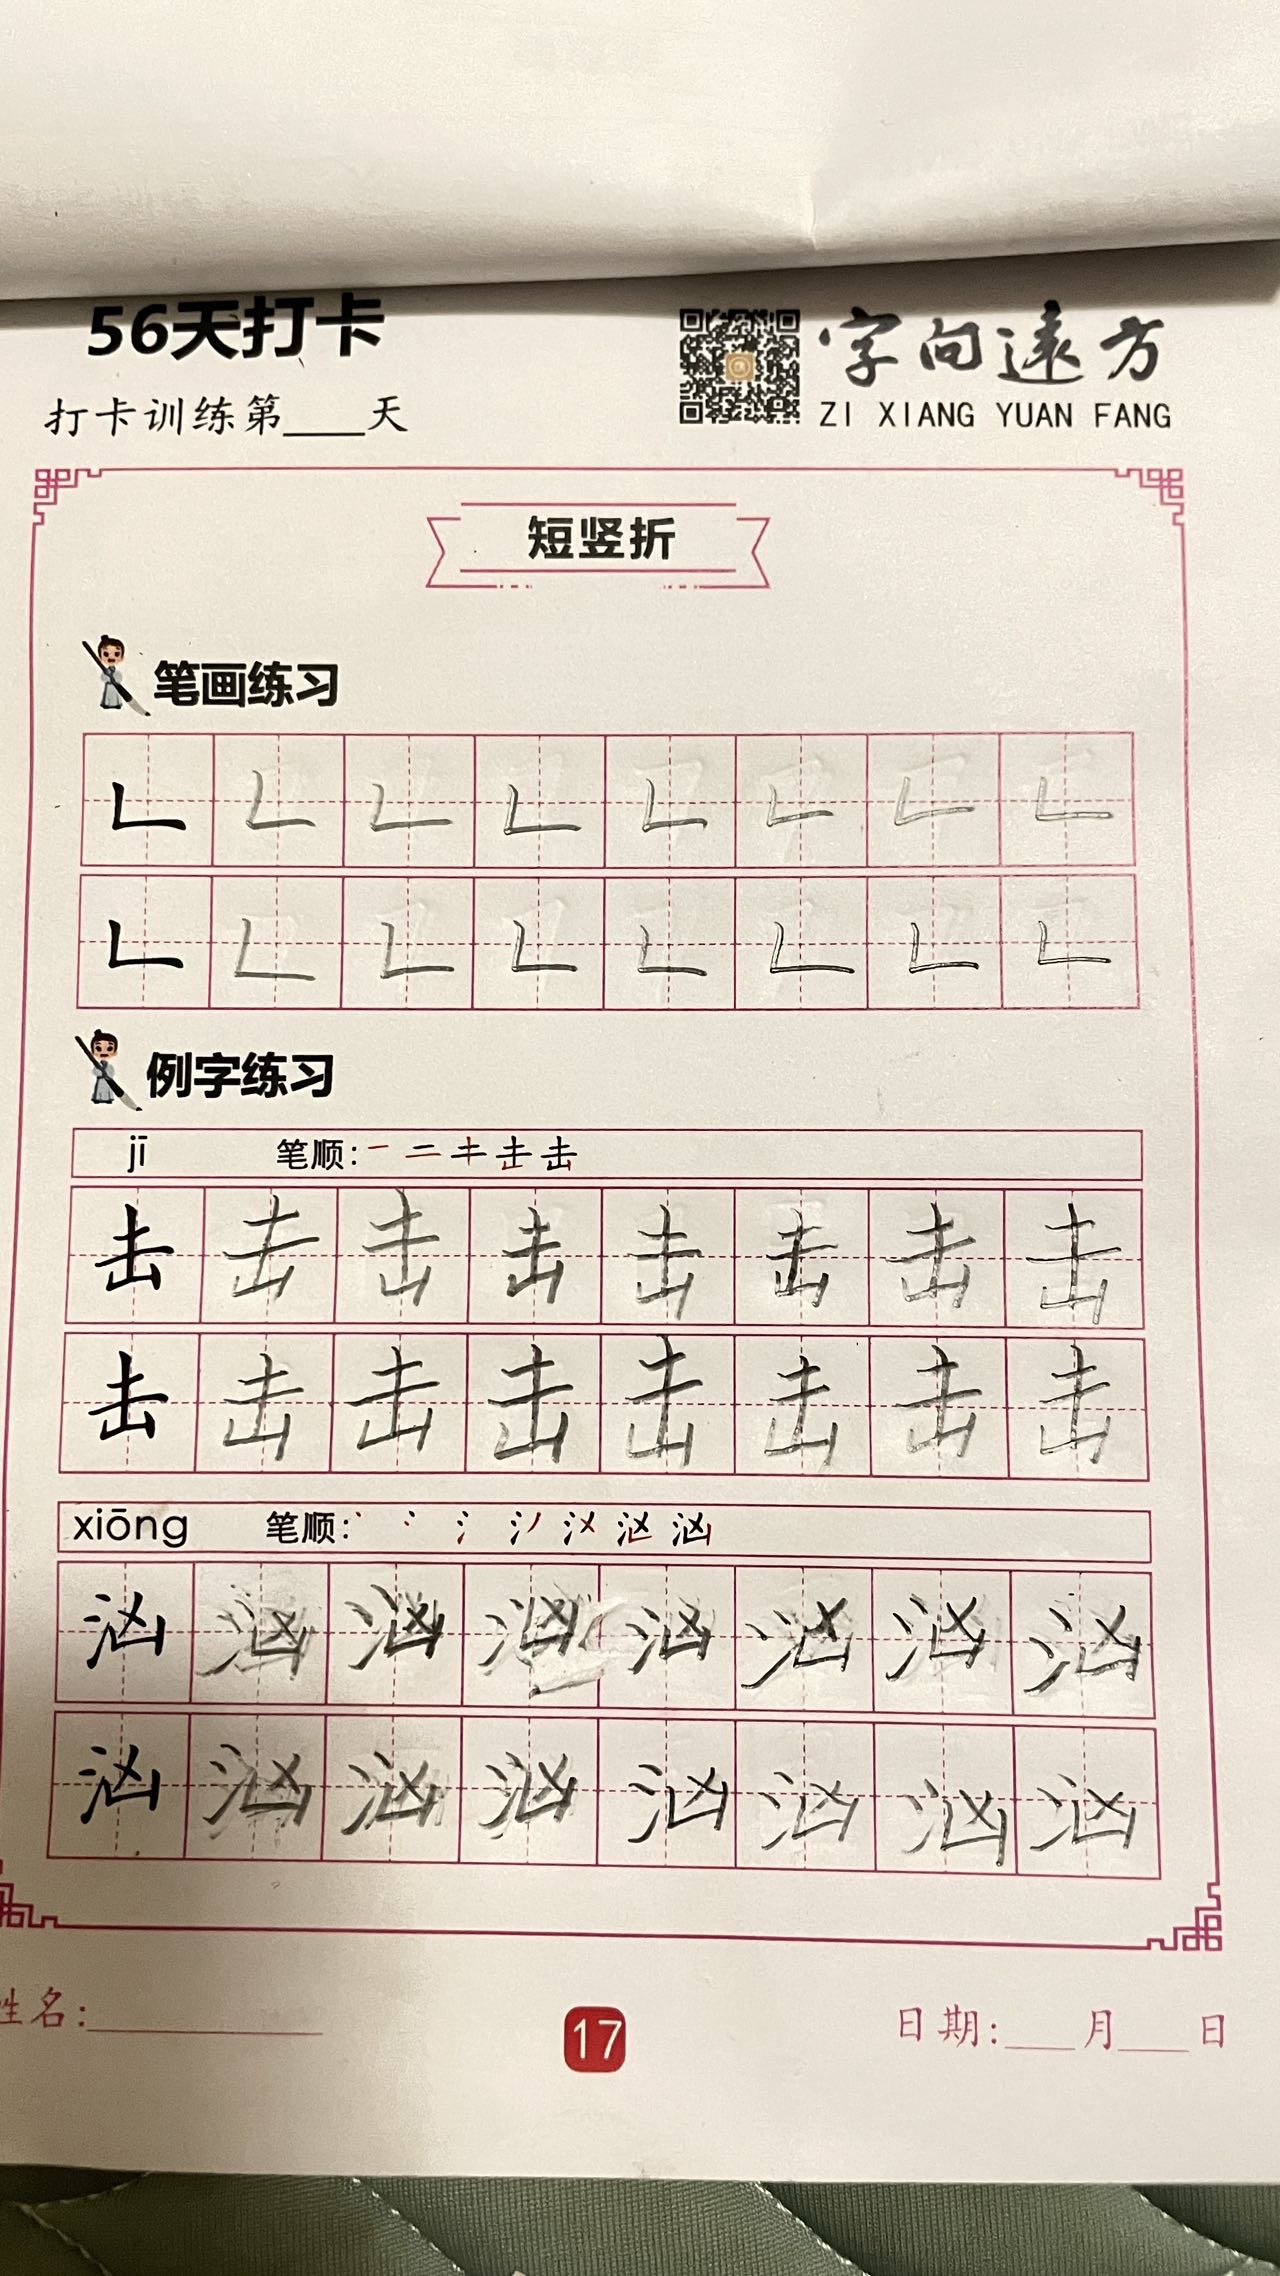 56天打卡
字向远方
打卡训练第____天
ZI XIANG YUAN FANG
短竖折
笔画练习
𠃊 𠃊 𠃊 𠃊 𠃊 𠃊 𠃊 𠃊
𠃊 𠃊 𠃊 𠃊 𠃊 𠃊 𠃊 𠃊
例字练习
jī 笔顺:
击 击 击 击 击 击 击 击
击 击 击 击 击 击 击 击
xiōng 笔顺:
汹 汹 汹 汹 汹 汹 汹 汹
汹 汹 汹 汹 汹 汹 汹 汹
姓名:__________ 17 日期:___月___日